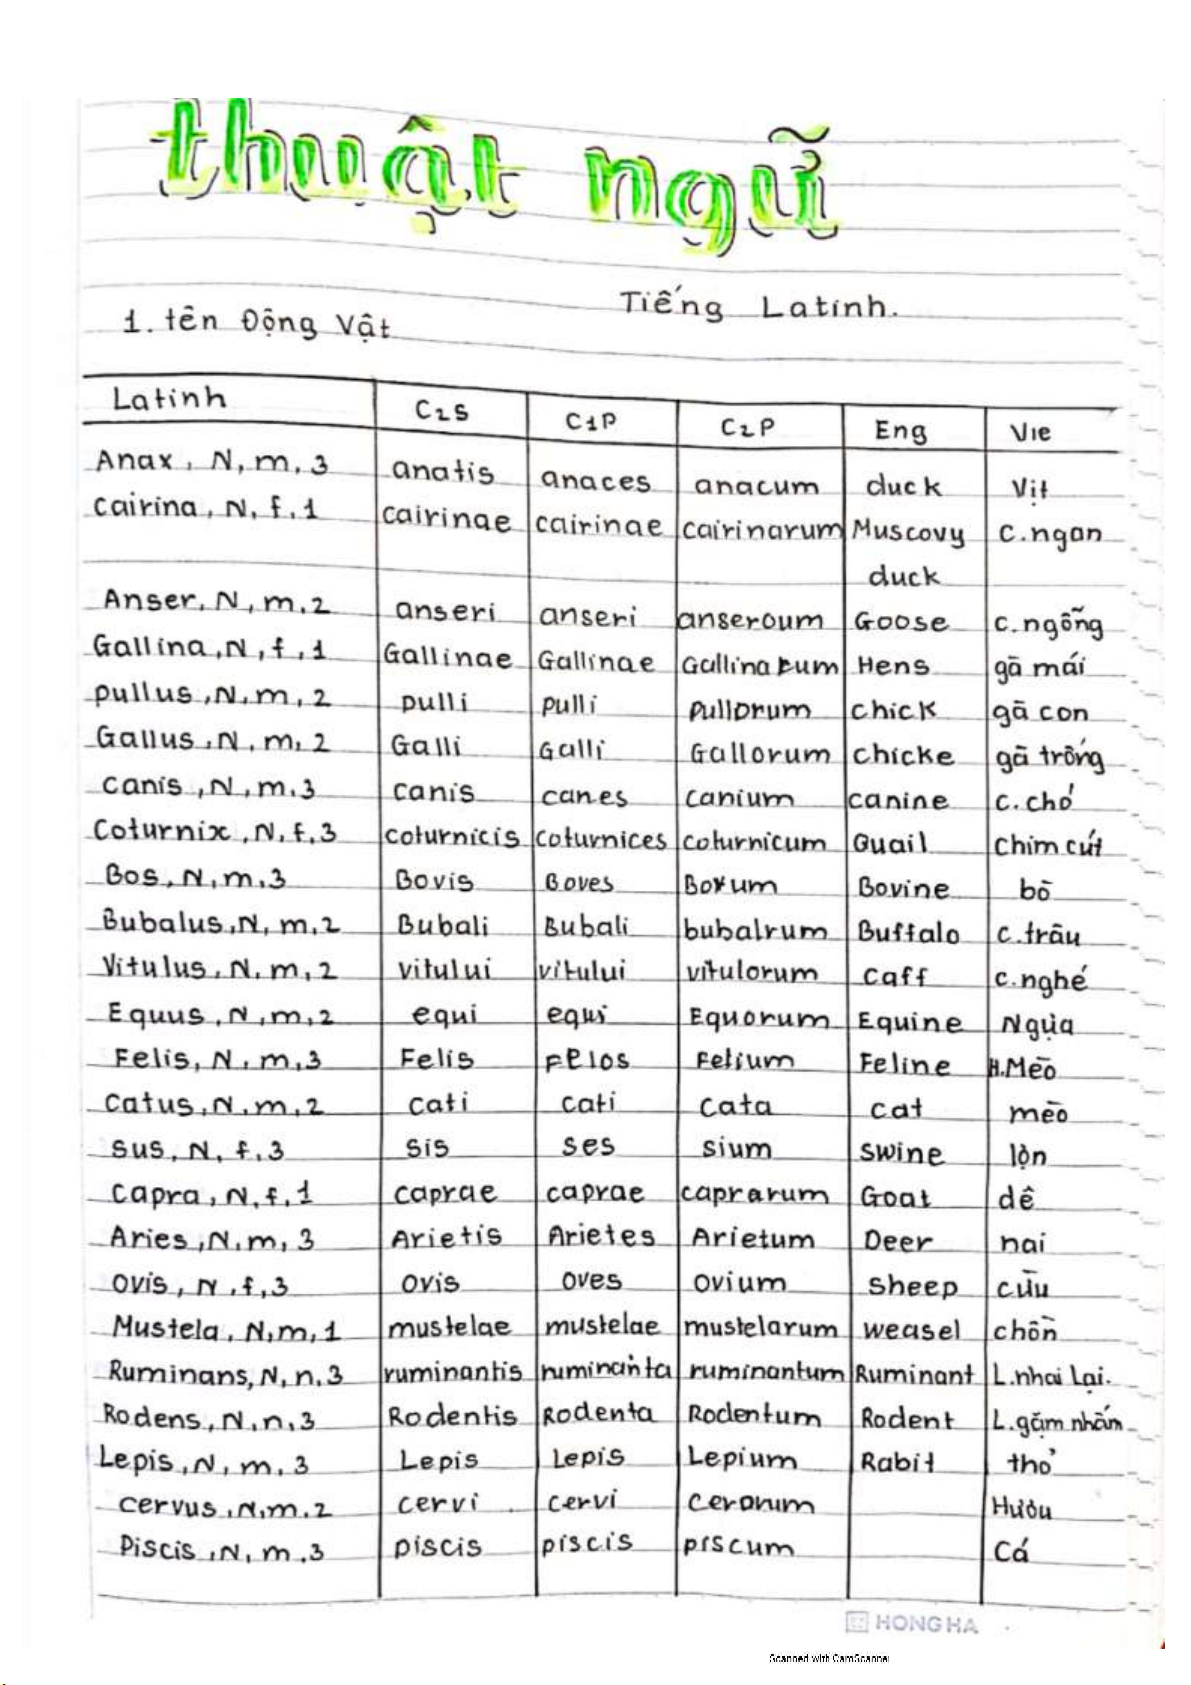 thuật ngữ
Tiếng Latinh.
1. tên Động Vật
Latinh C2S C1P C2P Eng Vie
Anax, N, m, 3 anatis anaces anacum duck Vịt
Cairina, N, f, 1 cairinae cairinae cairinarum Muscovy c.ngan
duck
Anser, N, m, 2 anseri anseri anseroum Goose c.ngỗng
Gallina, N, f, 1 Gallinae Gallinae Gallinarum Hens gà mái
pullus, N, m, 2 pulli pulli pullorum chick gà con
Gallus, N, m, 2 Galli Galli Gallorum chicke gà trống
canis, N, m, 3 canis canes canium canine c.chó
Coturnix, N, f, 3 coturnicis coturnices coturnicum Quail chim cút
Bos, N, m, 3 Bovis Boves Bovum Bovine bò
Bubalus, N, m, 2 Bubali Bubali bubalrum Buffalo c.trâu
Vitulus, N, m, 2 vitului vitului vitulorum caff c.nghé
Equus, N, m, 2 equi equi Equorum Equine Ngựa
Felis, N, m, 3 Felis Felos Felium Feline H.Mèo
Catus, N, m, 2 cati cati cata cat mèo
sus, N, f, 3 sis ses sium swine lợn
Capra, N, f, 1 caprae caprae caprarum Goat dê
Aries, N, m, 3 Arietis Arietes Arietum Deer nai
ovis, N, f, 3 ovis oves ovium sheep cừu
Mustela, N, m, 1 mustelae mustelae mustelarum weasel chồn
Ruminans, N, n, 3 ruminantis ruminanta ruminantum Ruminant L.nhai lại.
Rodens, N, n, 3 Rodentis Rodenta Rodentum Rodent L.gặm nhấm
Lepis, N, m, 3 Lepis Lepis Lepium Rabit thỏ
cervus, N, m, 2 cervi cervi cerorum Hươu
Piscis, N, m, 3 piscis piscis piscum Cá
HONG HA
Scanned with CamScanner